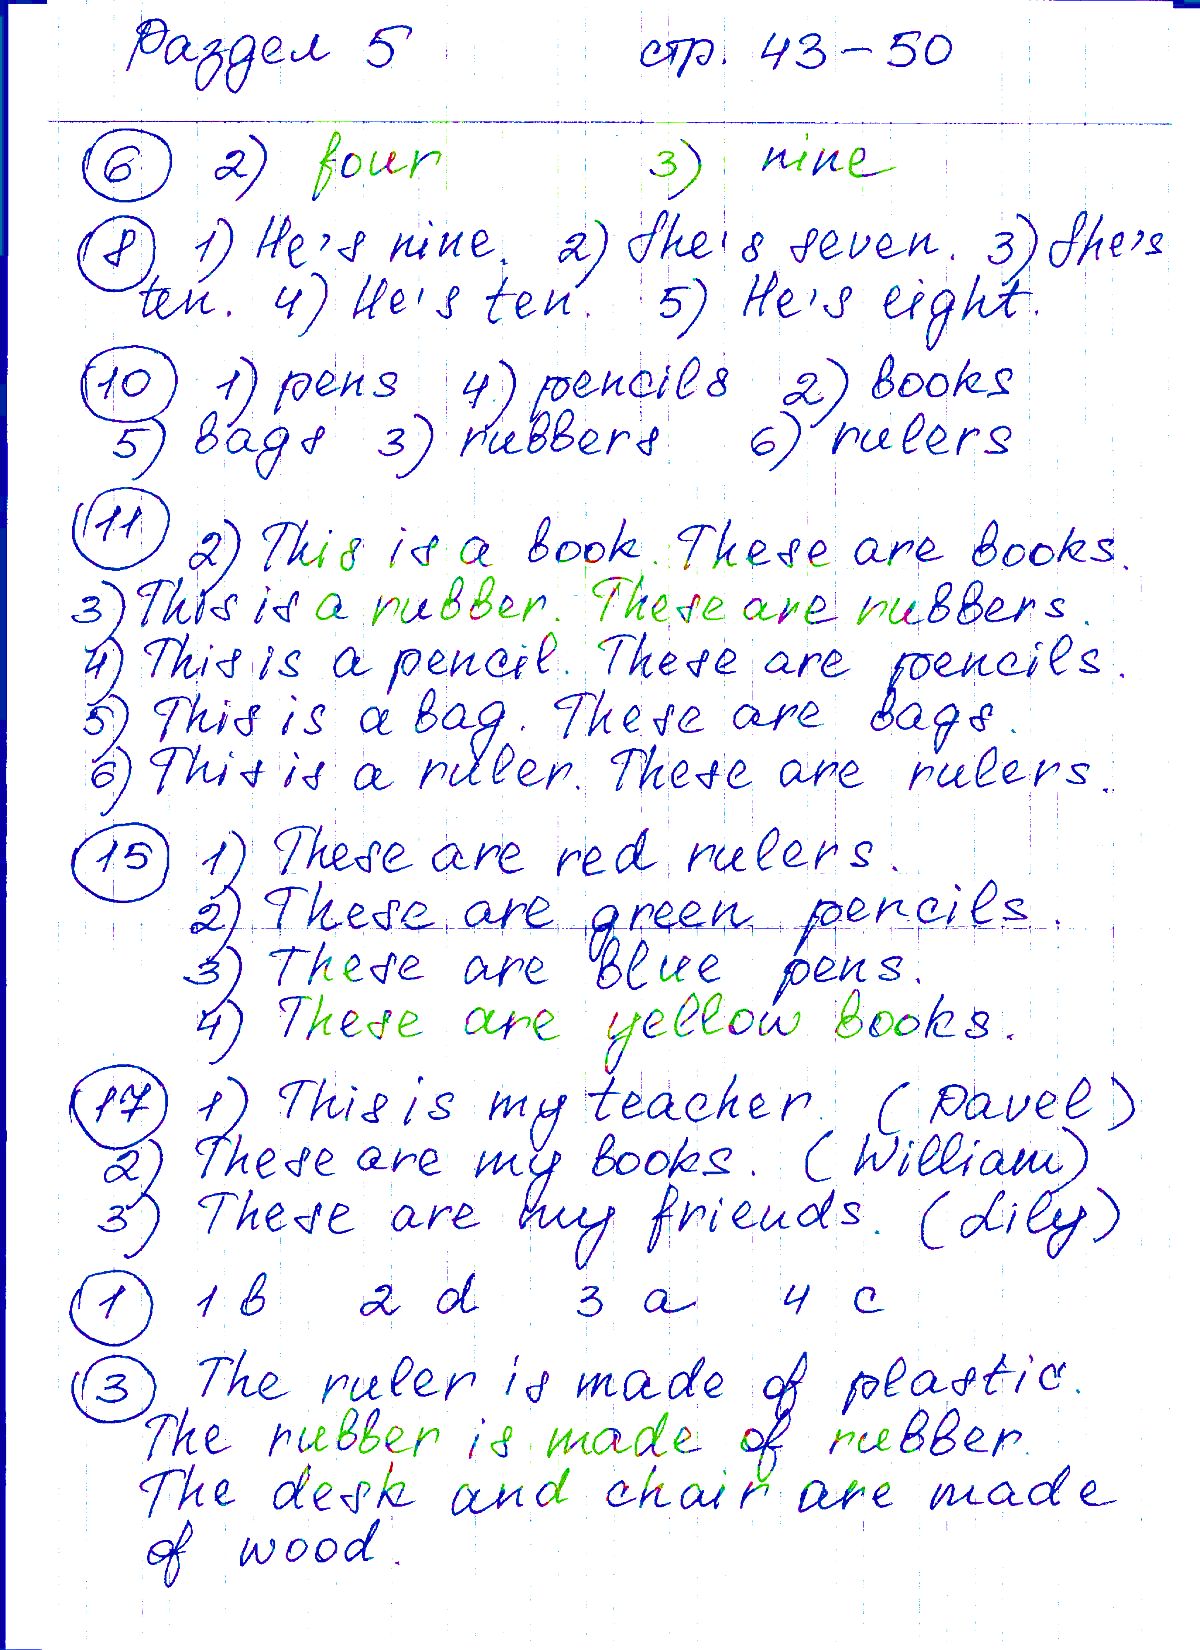 Раздел 5 стр. 43-50
6 2) four 3) nine
8 1) He's nine. 2) She's seven. 3) She's
ten. 4) He's ten. 5) He's eight.
10 1) pens 4) pencils 2) books
5) bags 3) rubbers 6) rulers
11 2) This is a book. These are books.
3) This is a rubber. These are rubbers.
4) This is a pencil. These are pencils.
5) This is a bag. These are bags.
6) This is a ruler. These are rulers.
15 1) These are red rulers.
2) These are green pencils.
3) These are blue pens.
4) These are yellow books.
17 1) This is my teacher. (Pavel)
2) These are my books. (William)
3) These are my friends. (Lily)
1 1 b 2 d 3 a 4 c
3 The ruler is made of plastic.
The rubber is made of rubber.
The desk and chair are made
of wood.